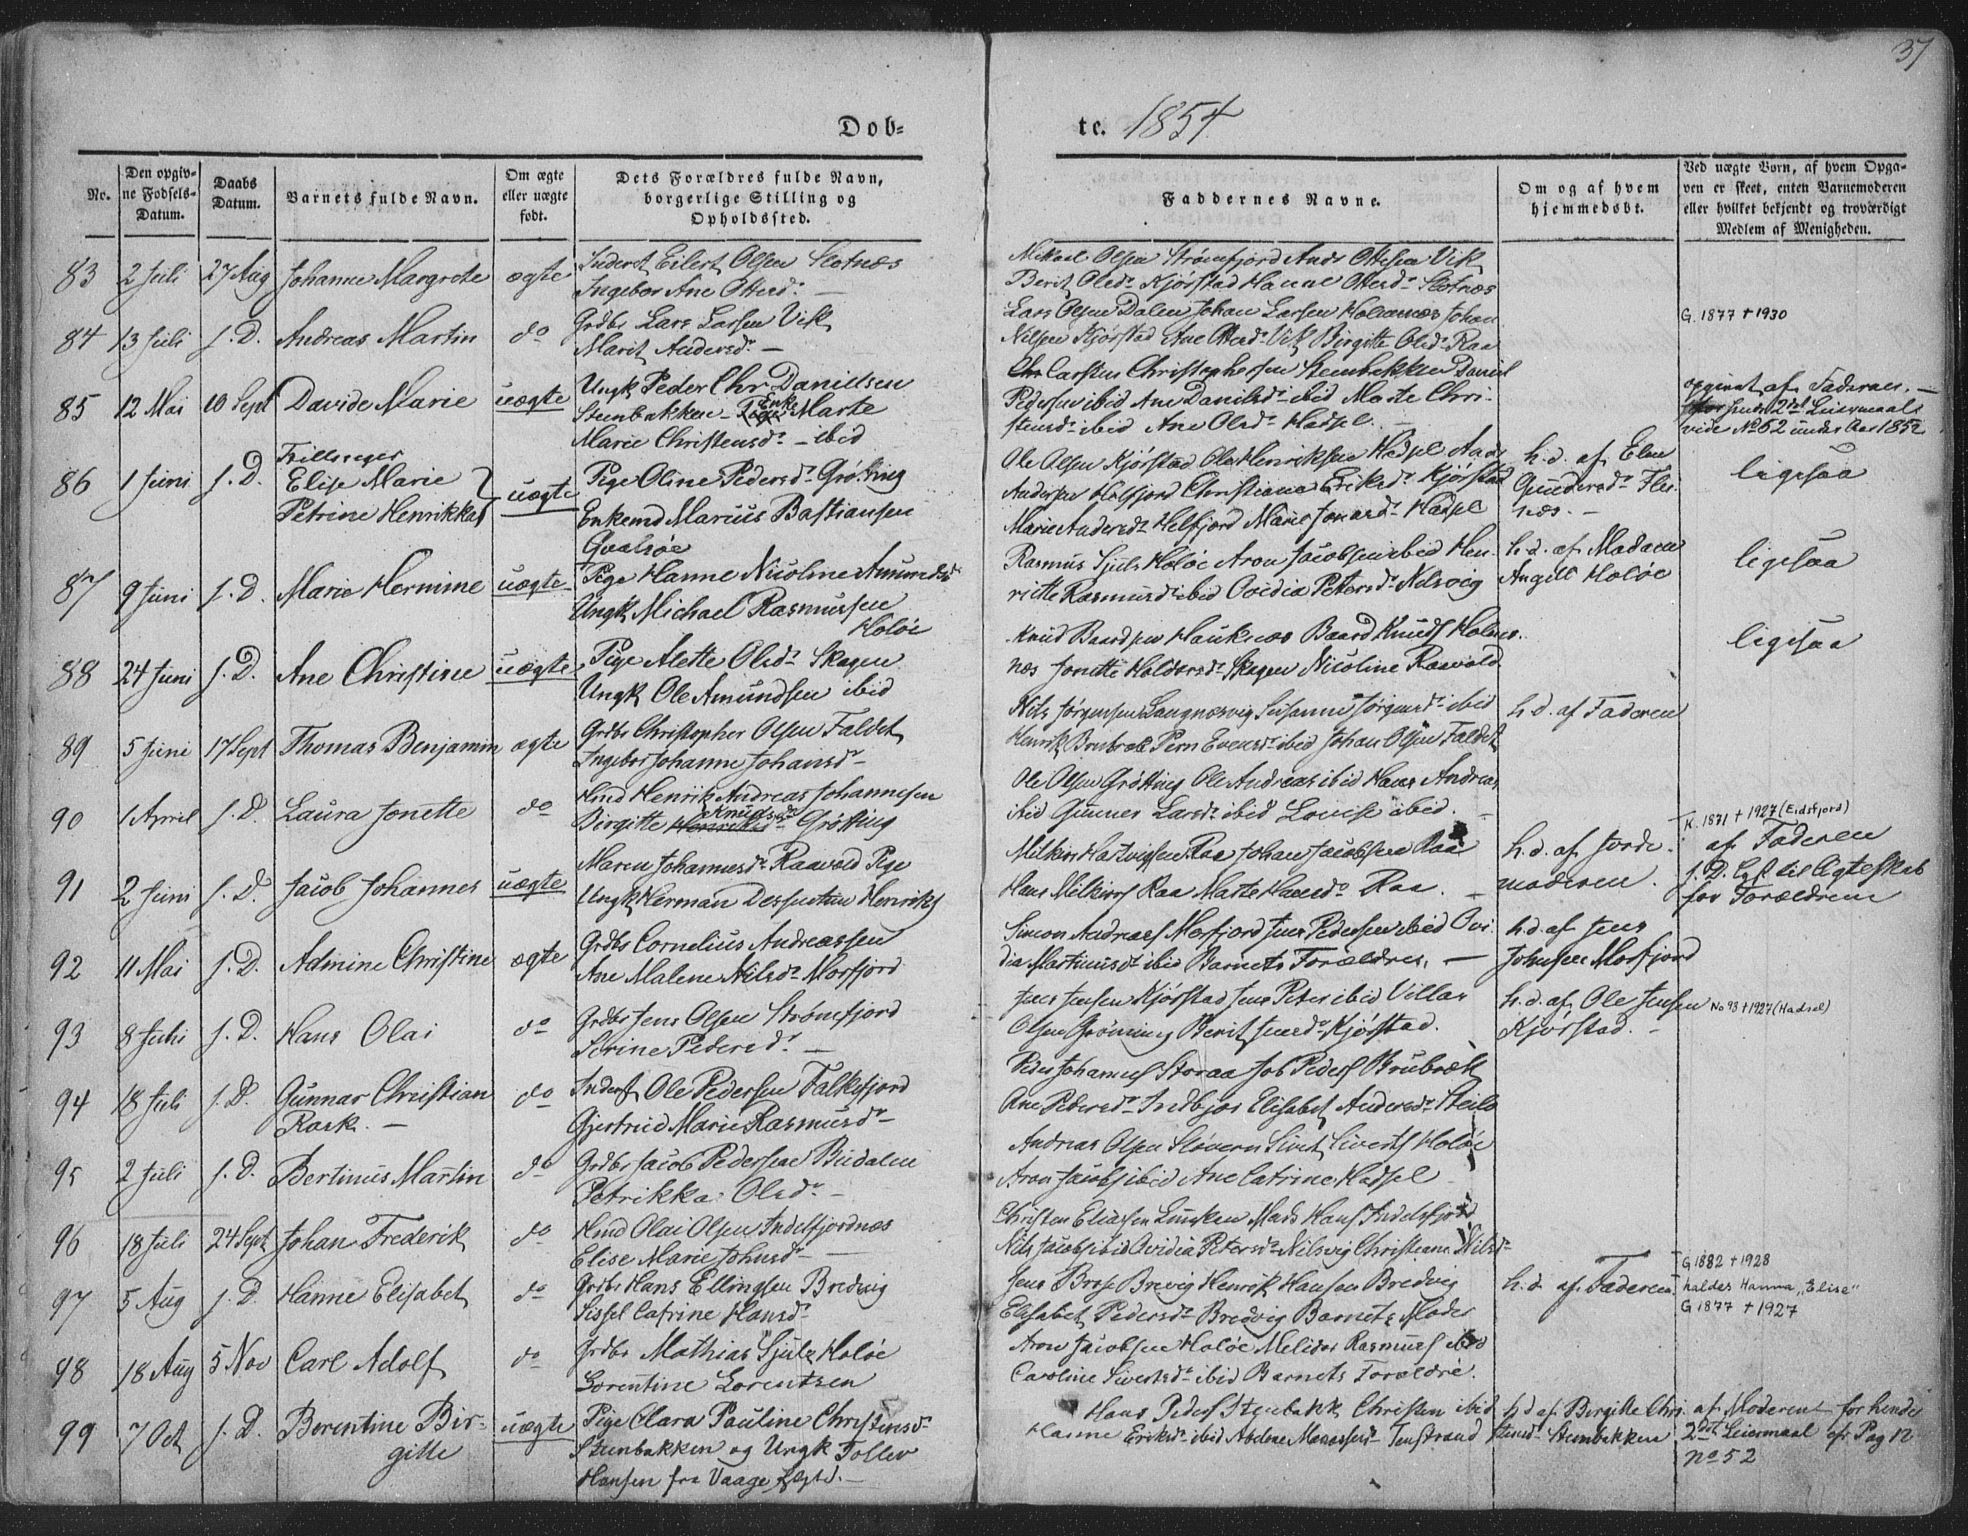 37
Dob= te. 1854
No. Den opgivne Fødsels-Datum. Daabs Datum. Barnets fulde Navn. Om ægte eller uægte født. Dets Forældres fulde Navn, borgerlige Stilling og Opholdssted. Faddernes Navne. Om og af hvem hjemmedøbt. Ved uægte Børn, af hvem Opgaven er skeet, enten Barnemoderen eller hvilket bekjendt og troværdigt Medlem af Menigheden.
83 2 Juli 27 Aug Johanne Margrete ægte Inderst Eilert Olsen Slotnæs
Ingebor Ane Ottersd. —
Mikael Olsen Strømfjord Anders Ottesen Vik
Berit Olsd. Kjørstad Hanne Ottersd. Slotnæs
84 13 Juli s. D. Andreas Martin do Grdbr Lars Larsen Vik
Marit Andersd. —
Lars Olsen Dalen Johan Larsen Holmnæs Johan
Nilsen Kjørstad Ane Ottersd. Vik Birgitte Olsd. Raa
G. 1877 † 1930
85 12 Mai 10 Sept Davide Marie uægte Ungk Peder Chr Danielsen
Steenbakken – Enke Marte
Marie Christensd. – ibid
Carsten Christophersen Steenbakken Daniel
Pedersen ibid Ane Danielsd. ibid Marte Chri-
stensd. ibid Ane Olsd. Hadsel. —
opgivet af Faderen. —
2det Leiermaal
vide No 62 under Aar 1852
86 1 Juni s. D. Trillinger
Elise Marie
Petrine Henrikka uægte Pige Oline Pedersd. Grøtting
Enkemd Marius Bastiansen
Qvalsøe
Ole Olsen Kjørstad Ole Henriksen Hadsel And
Andersen Helfjord Christiana Eriksd. Kjørstad
Marie Andersd. Helfjord Marie Jonasd. Hadsel
h. d. af Elen
Gundersd. Fles-
næs. —
ligesaa
87 9 Juni s. D. Marie Hermine uægte Pige Hanne Nicoline Amundsd.
Ungk Michael Rasmussen
Holøe
Rasmus Sjuls Holøe Aron Jacobsen ibid Hen-
riette Rasmusd. ibid Ovidia Petersd. Nilsvig
h. d. af Madam
Angell Holøe
ligesaa
88 24 Juni s. D. Ane Christine uægte Pige Alette Olsd. Skagen
Ungk Ole Amundsen ibid
Knud Baardsen Hauknæs Baard Knuds Holm-
næs Jonette Holdersd. Skagen Nicoline Raavold
ligesaa
89 5 Juni 17 Sept Thomas Benjamin ægte Grdbr Christopher Olsen Faldet
Ingebor Johanne Johansd. —
Nils Jørgensen Langnæsvig Susanne Jørgensd. ibid
Henrik Brubræk Pern Evensd. ibid Johan Olsen Faldet
h. d. af Faderen
90 1 April s. D. Laura Jonette do Hmd Henrik Andreas Johannesen
Birgitte Knudsd. Grøtting
Ole Olsen Grøtting Ole Andreas ibid Hans Andreas
ibid Gunner Larsd. ibid Lovise ibid.
K. 1871 † 1927 (Eidsfjord)
91 2 Juni s. D. Jacob Johannes uægte Maren Johannesd. Raavold Pige
Ungk Herman Henriks
Milkior Hartvigsen Raa Johan Jacobsen Raa
Hans Milkiors Raa Marte Hansd. Raa. —
h. d. af Jorde-
moderen.
af Faderen
s. D. til Ægteskab
for Forældrene
92 11 Mai s. D. Admine Christine ægte Grdbr Cornelius Andreassen
Ane Malene Nilsd. Morfjord
Simon Andreas Morfjord Jens Pedersen ibid Ovi-
dia Martinusd. ibid Barnets Forældre. —
h. d. af Jens
Johnsen Morfjord
93 8 Juli s. D. Hans Olai do Grdbr Jens Olsen Strømfjord
Serine Pedersd. —
Jens Jensen Kjørstad Jens Peter ibid Villas
Olsen Grønning Berit Jensd. Kjørstad.
h. d. af Ole Jensen
Kjørstad. —
No 98 † 1927 (Hadsel)
94 18 Juli s. D. Gunnar Christian
Rask. — do Inderst Ole Pedersen Falkefjord
Gjertrud Marie Rasmusd. —
Peder Johannes Storaa Job Peders Brubræk
Ane Pedersd. Indbjor Elisabet Andersd. Steilo
95 2 Juli s. D. Bertinus Martin do Grdbr Jacob Pedersen Budalen
Petrikka Olsd. —
Andreas Olsen Sløveren Sivert Siverts Holøe
Aron Jacobs ibid Ane Catrine Hadsel
96 18 Juli 24 Sept Johan Frederik do Hmd Olai Olsen Indelfjordnæs
Elise Marie Johnsd. —
Christen Eliassen Mads Hans Indelfjord
Nils Jacobs ibid Ovidia Petersd. Nilsvig Christiane Nilsd.
97 5 Aug s. D. Hanne Elisabet do Grdbr Hans Ellingsen Bredvig
Sissel Catrine Hansd.
Jens Brose Brevig Henrik Hansen Bredvig
Elisabet Pedersd. Bredvig Barnets Moder
h. d. af Faderen
G 1882 † 1928
kaldes Hanna „Elise"
G 1877 † 1927
98 18 Aug 5 Nov Carl Adolf do Grdbr Mathias Sjuls Holøe
Lorentine Lorentsen
Aron Jacobsen Holøe Melidor Rasmus ibid
Caroline Sivertsd. ibid Barnets Forældre.
99 7 Oct s. D. Berentine Bir-
gitte uægte Pige Clara Pauline Christensd.
Steenbakken og Ungk Tollev
Hansen fra Vaage —
Hans Peders Steenbakk Christen ibid
Hanne Eriksd. ibid Abelone Manassesd. Jenstrand
h d af Birgitte Chri-
stensd. Steenbakken
af Moderen for hendes
2det Leiermaal cfr Pag 12
no 52